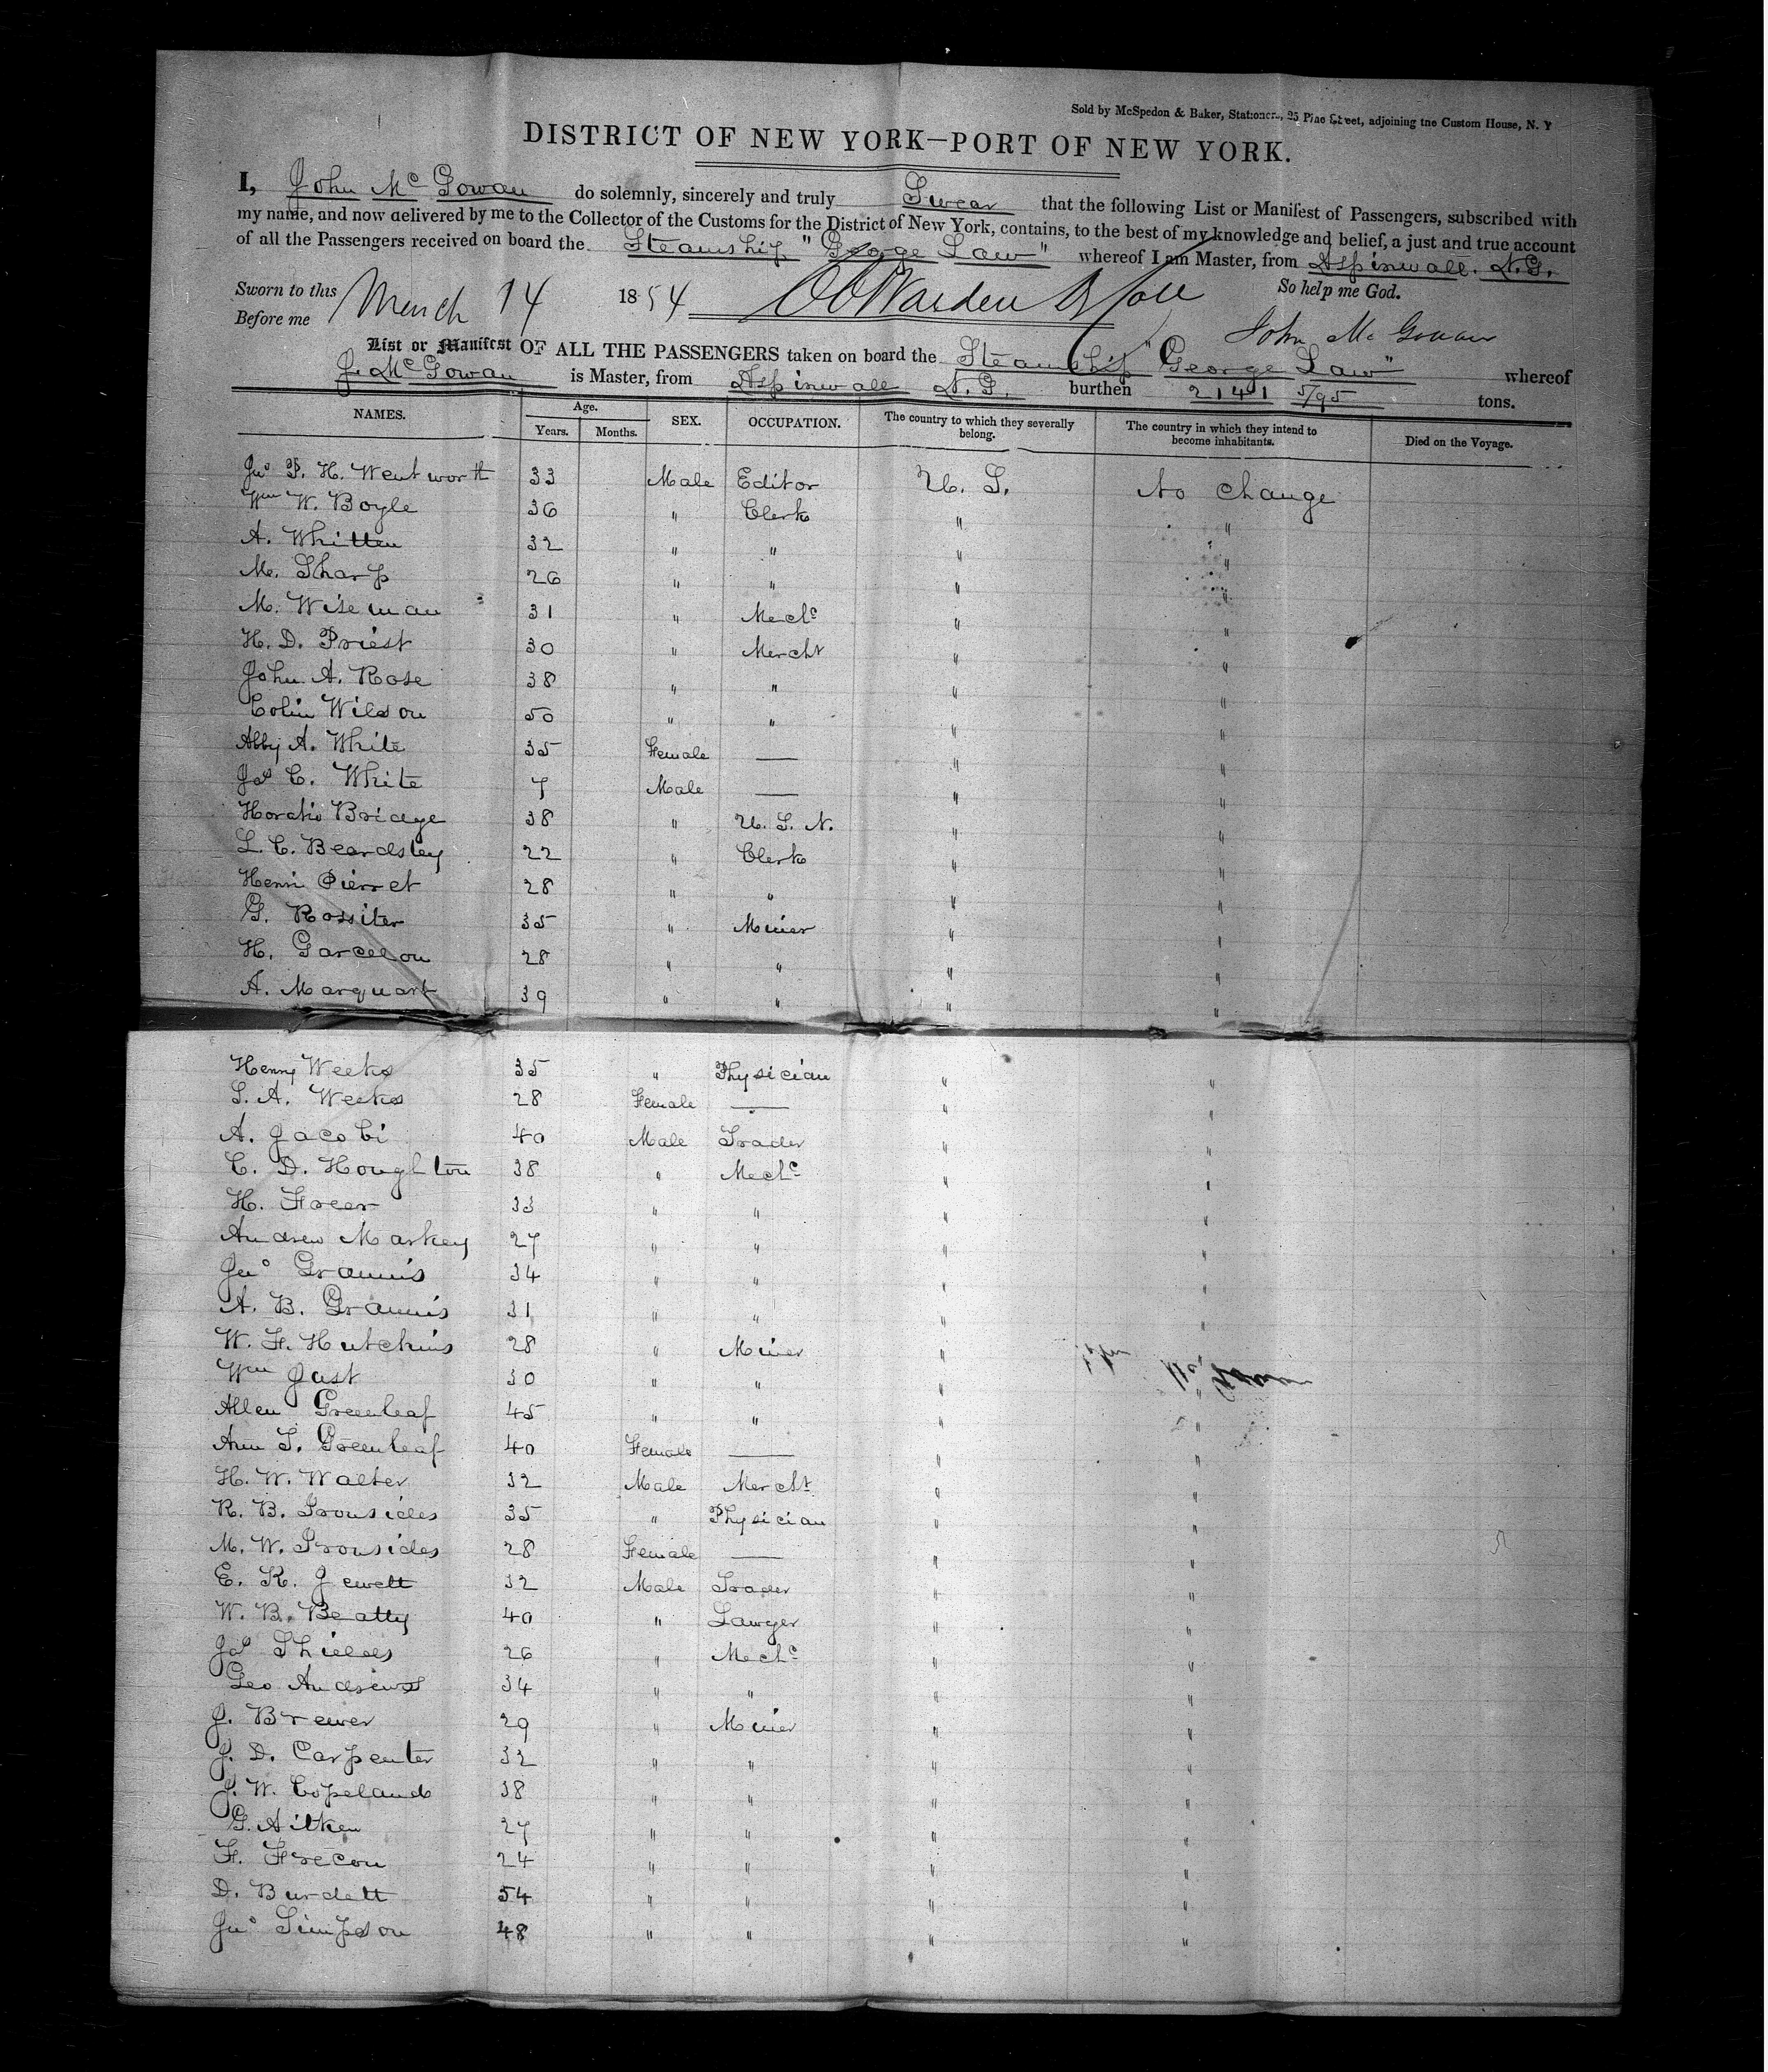 Sold by McSpedon & Baker, Stationers, 25 Pine Street, adjoining the Custom House, N. Y
DISTRICT OF NEW YORK—PORT OF NEW YORK.
I, John Mc Gowan do solemnly, sincerely and truly Swear that the following List or Manifest of Passengers, subscribed with
my name, and now delivered by me to the Collector of the Customs for the District of New York, contains, to the best of my knowledge and belief, a just and true account
of all the Passengers received on board the Steamship "George Law" whereof I am Master, from Aspinwall. N.G.
Sworn to this March 14 1854 So help me God.
Before me
John Mc Gowan
List or Manifest OF ALL THE PASSENGERS taken on board the Steamship "George Law" whereof
J. Mc Gowan is Master, from Aspinwall N.G. burthen 2141 5/95 tons.
NAMES. Age. Years. Months. SEX. OCCUPATION. The country to which they severally belong. The country in which they intend to become inhabitants. Died on the Voyage.
Jno P. H. Wentworth 33 Male Editor U. S. No change
Wm W. Boyle 36 " Clerk " "
A. Whitten 32 " " " "
M. Sharp 26 " " " "
M. Wiseman 31 " Mechc " "
H. D. Priest 30 " Mercht " "
John A. Rose 38 " " " "
Colin Wilson 50 " " " "
Abby A. White 35 Female — " "
Jas C. White 7 Male — " "
Horatio Bridge 38 " U. S. N. " "
L. C. Beardsley 22 " Clerk " "
Henri Pierret 28 " " " "
G. Rossiter 35 " Miner " "
H. Garcelon 28 " " " "
A. Marquart 39 " " " "
Henry Weeks 35 " Physician " "
S. A. Weeks 28 Female — " "
A. Jacobi 40 Male Trader " "
C. D. Houghton 38 " Mechc " "
H. Freer 33 " " " "
Andrew Markey 27 " " " "
Jno Grannis 34 " " " "
A. B. Grannis 31 " " " "
W. F. Hutchins 28 " Miner " "
Wm Jast 30 " " " "
Allen Greenleaf 45 " " " "
Ann S. Greenleaf 40 Female — " "
H. W. Walter 32 Male Mercht " "
R. B. Ironsides 35 " Physician " "
M. W. Ironsides 28 Female — " "
E. K. Jewett 32 Male Trader " "
W. B. Beatty 40 " Lawyer " "
Jas Shields 26 " Mechc " "
Geo Andrews 34 " " " "
J. Brewer 29 " Miner " "
J. D. Carpenter 32 " " " "
J. W. Copeland 38 " " " "
G. Aitken 27 " " " "
F. Frecon 24 " " " "
D. Burdett 54 " " " "
Jno Simpson 48 " " " "